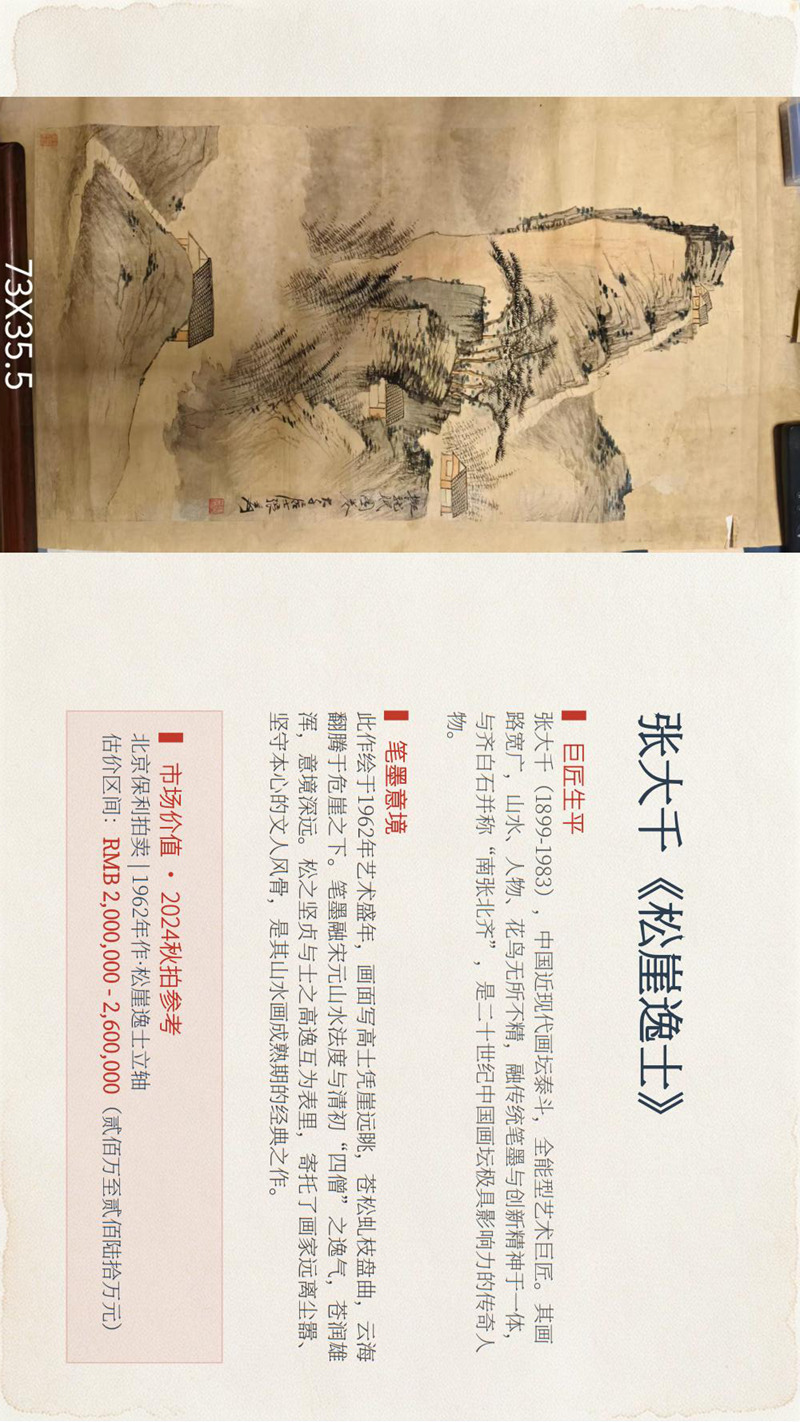 73X35.5
张大千《松崖逸士》
巨匠生平
张大千（1899-1983），中国近现代画坛泰斗，全能型艺术巨匠。其画
路宽广，山水、人物、花鸟无所不精，融传统笔墨与创新精神于一体，
与齐白石并称“南张北齐”，是二十世纪中国画坛极具影响力的传奇人
物。
笔墨意境
此作绘于1962年艺术盛年，画面写高士凭崖远眺，苍松虬枝盘曲，云海
翻腾于危崖之下。笔墨融宋元山水法度与清初“四僧”之逸气，苍润雄
浑，意境深远。松之坚贞与士之高逸互为表里，寄托了画家远离尘嚣、
坚守本心的文人风骨，是其山水画成熟期的经典之作。
市场价值·2024秋拍参考
北京保利拍卖 | 1962年作·松崖逸士立轴
估价区间：RMB 2,000,000 - 2,600,000（贰佰万至贰佰陆拾万元）